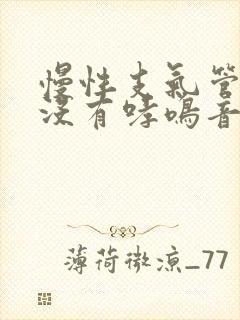 慢性支气管
没有哮鸣音
薄荷微凉_77